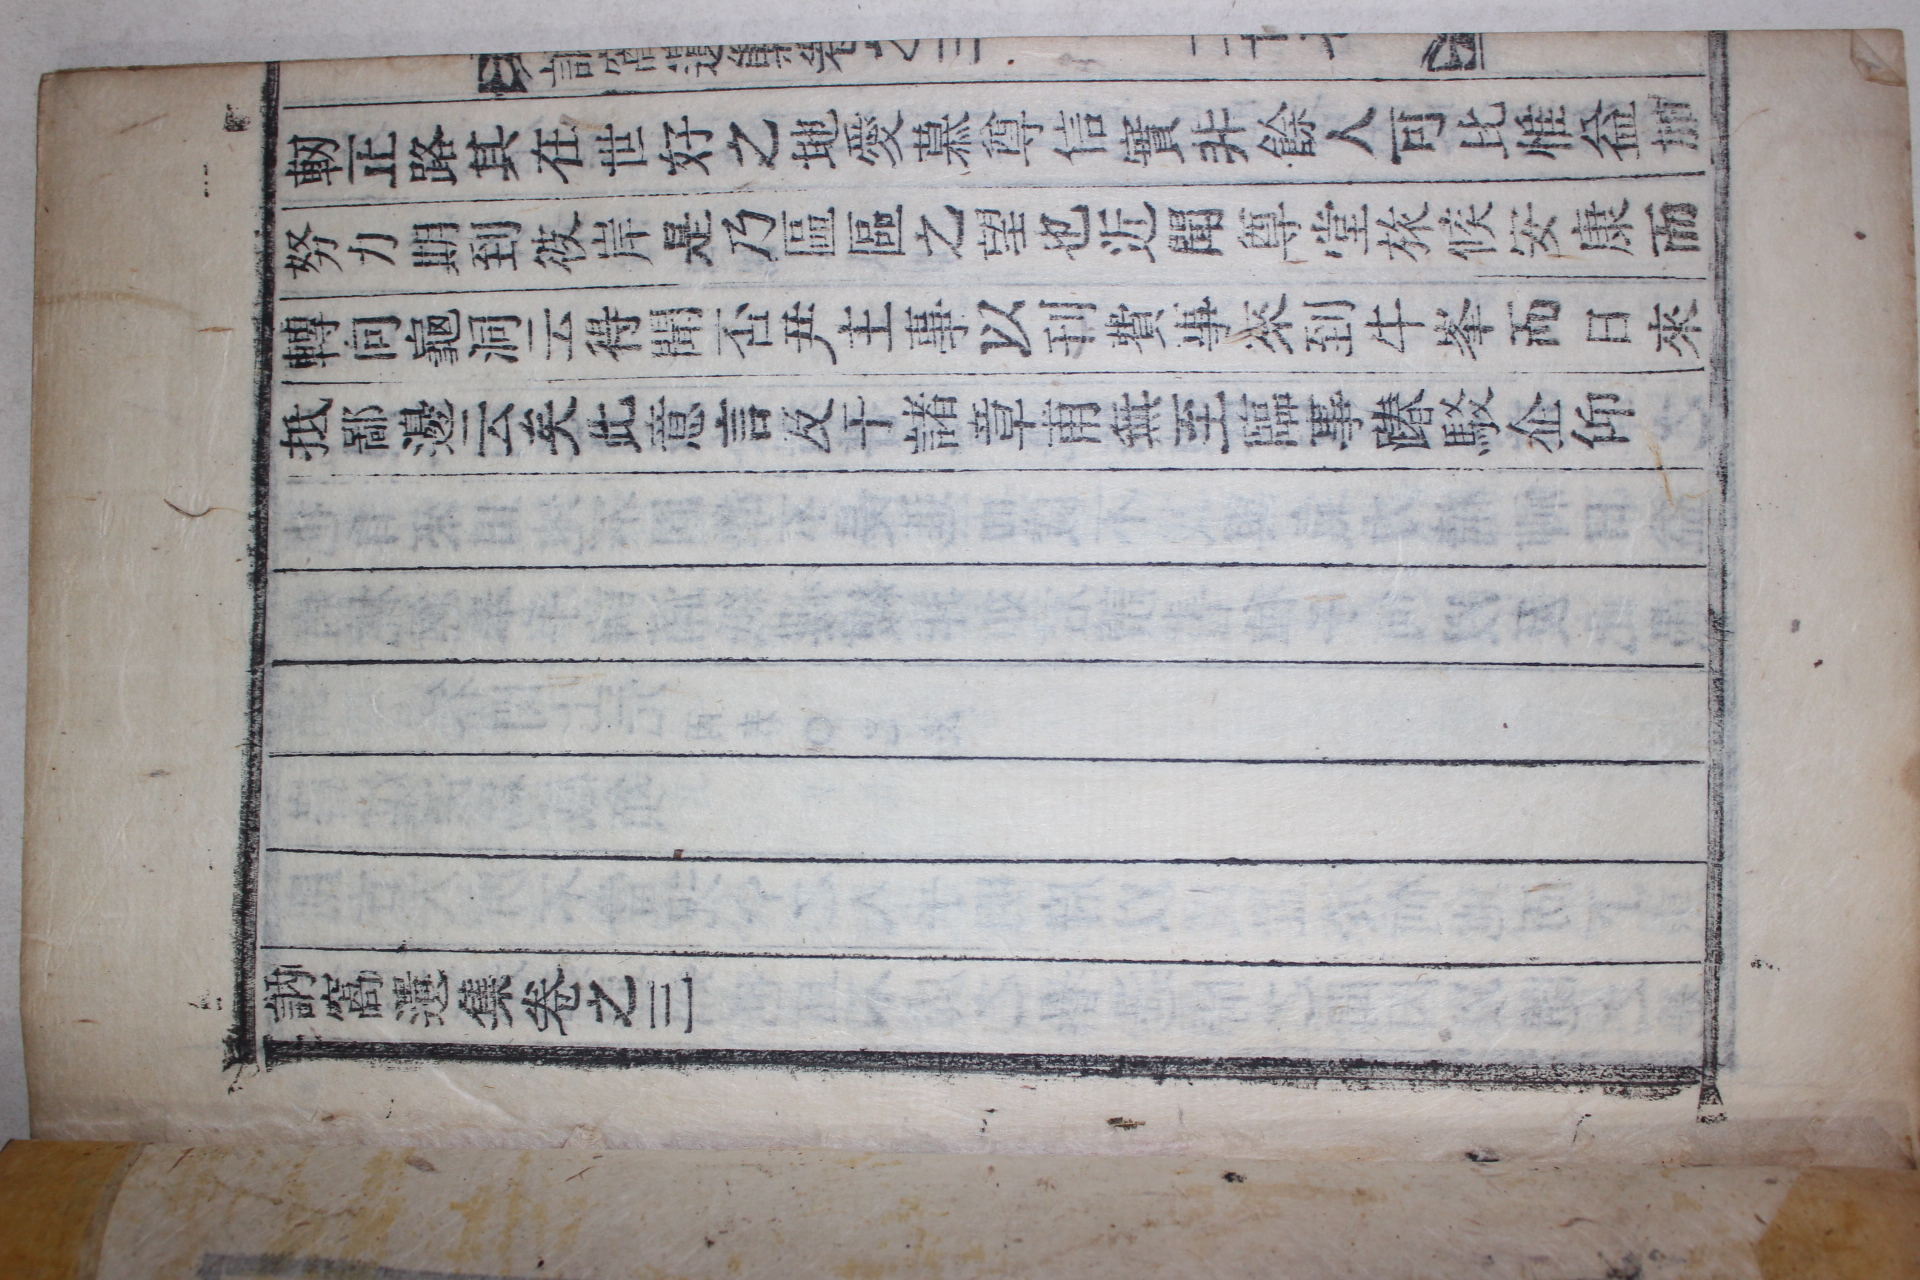 軔正路其在世好之地愛慕尊信實非餘人可比惟益加
努力期到彼岸是乃區區之望也近聞尊堂旅候安康而
轉向龜洞云得聞否尹主事以刊費事來到牛峯而日來
抵鄙邊云矣此意言及于諸章甫無至臨事踳駁企仰
訥窩遺集卷之三
訥窩遺集卷之三 二十七